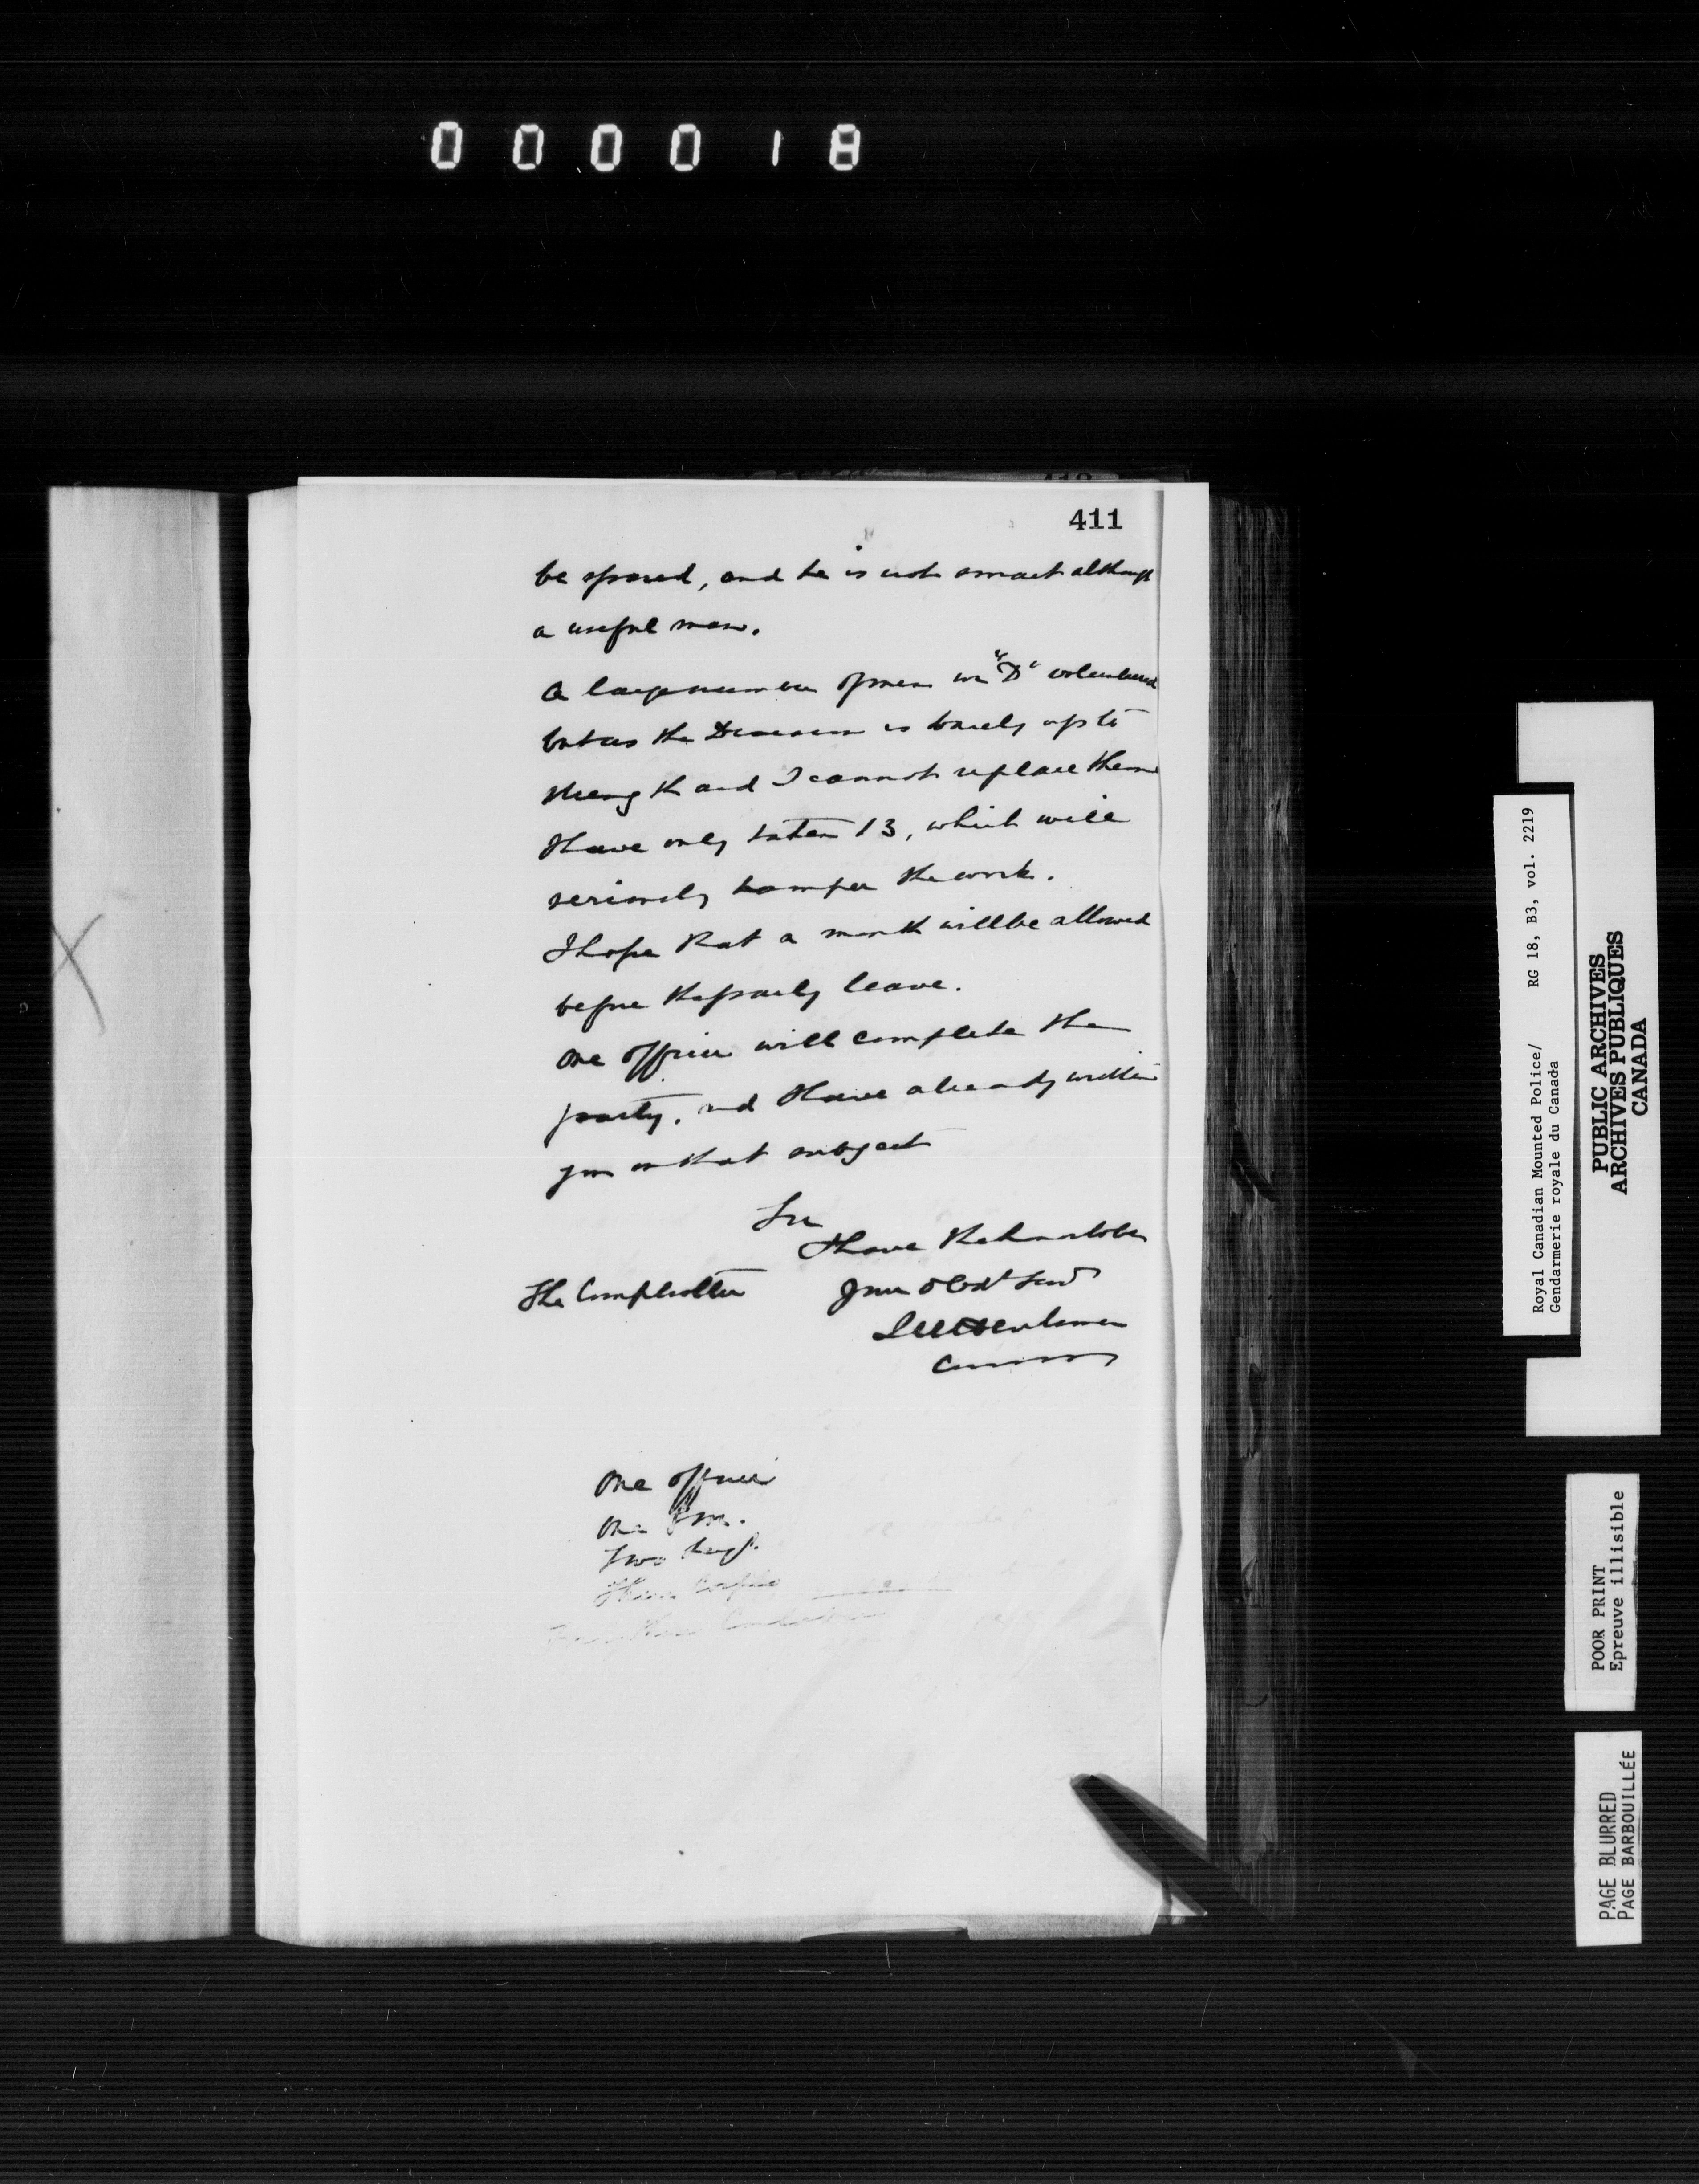 000018
411
be spared, and he is not smart although
a useful man.
A large number of men in "D" volunteered
but as the Division is barely up to
strength and I cannot replace them
I have only taken 13, which will
seriously hamper the work.
I hope that a month will be allowed
before the party leave.
One officer will complete the
party, and I have already written
you on that subject
Sir
I have the honor to be
The Comptroller
Your Obdt Servt
One officer
One
Two Sergt.
Three Corpls
Royal Canadian Mounted Police/ RG 18, B3, vol. 2219
Gendarmerie royale du Canada
PUBLIC ARCHIVES
ARCHIVES PUBLIQUES
CANADA
POOR PRINT
Epreuve illisible
PAGE BLURRED
PAGE BARBOUILLÉE